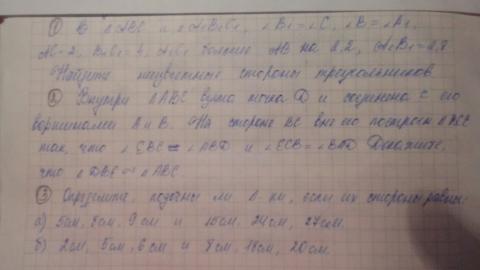 ① В △ABC и △A₁B₁C₁, ∠B₁ = ∠C, ∠B = ∠A₁,
AC = 2, B₁C₁ = 3, A₁C₁ больше AB на 2,2, A₁B₁ = 4,8
Найдите неизвестные стороны треугольников.
② Внутри △ABC взята точка D и соединена с его
вершинами A и B. На стороне BC вне его построен △BEC
так, что ∠EBC = ∠ABD и ∠ECB = ∠BAD Докажите,
что △DBE ~ △ABC
③ Определите, подобны ли △-ки, если их стороны равны:
а) 5см, 8см, 9см и 15см, 24см, 27см.
б) 2см, 5см, 6см и 8см, 18см, 20см.